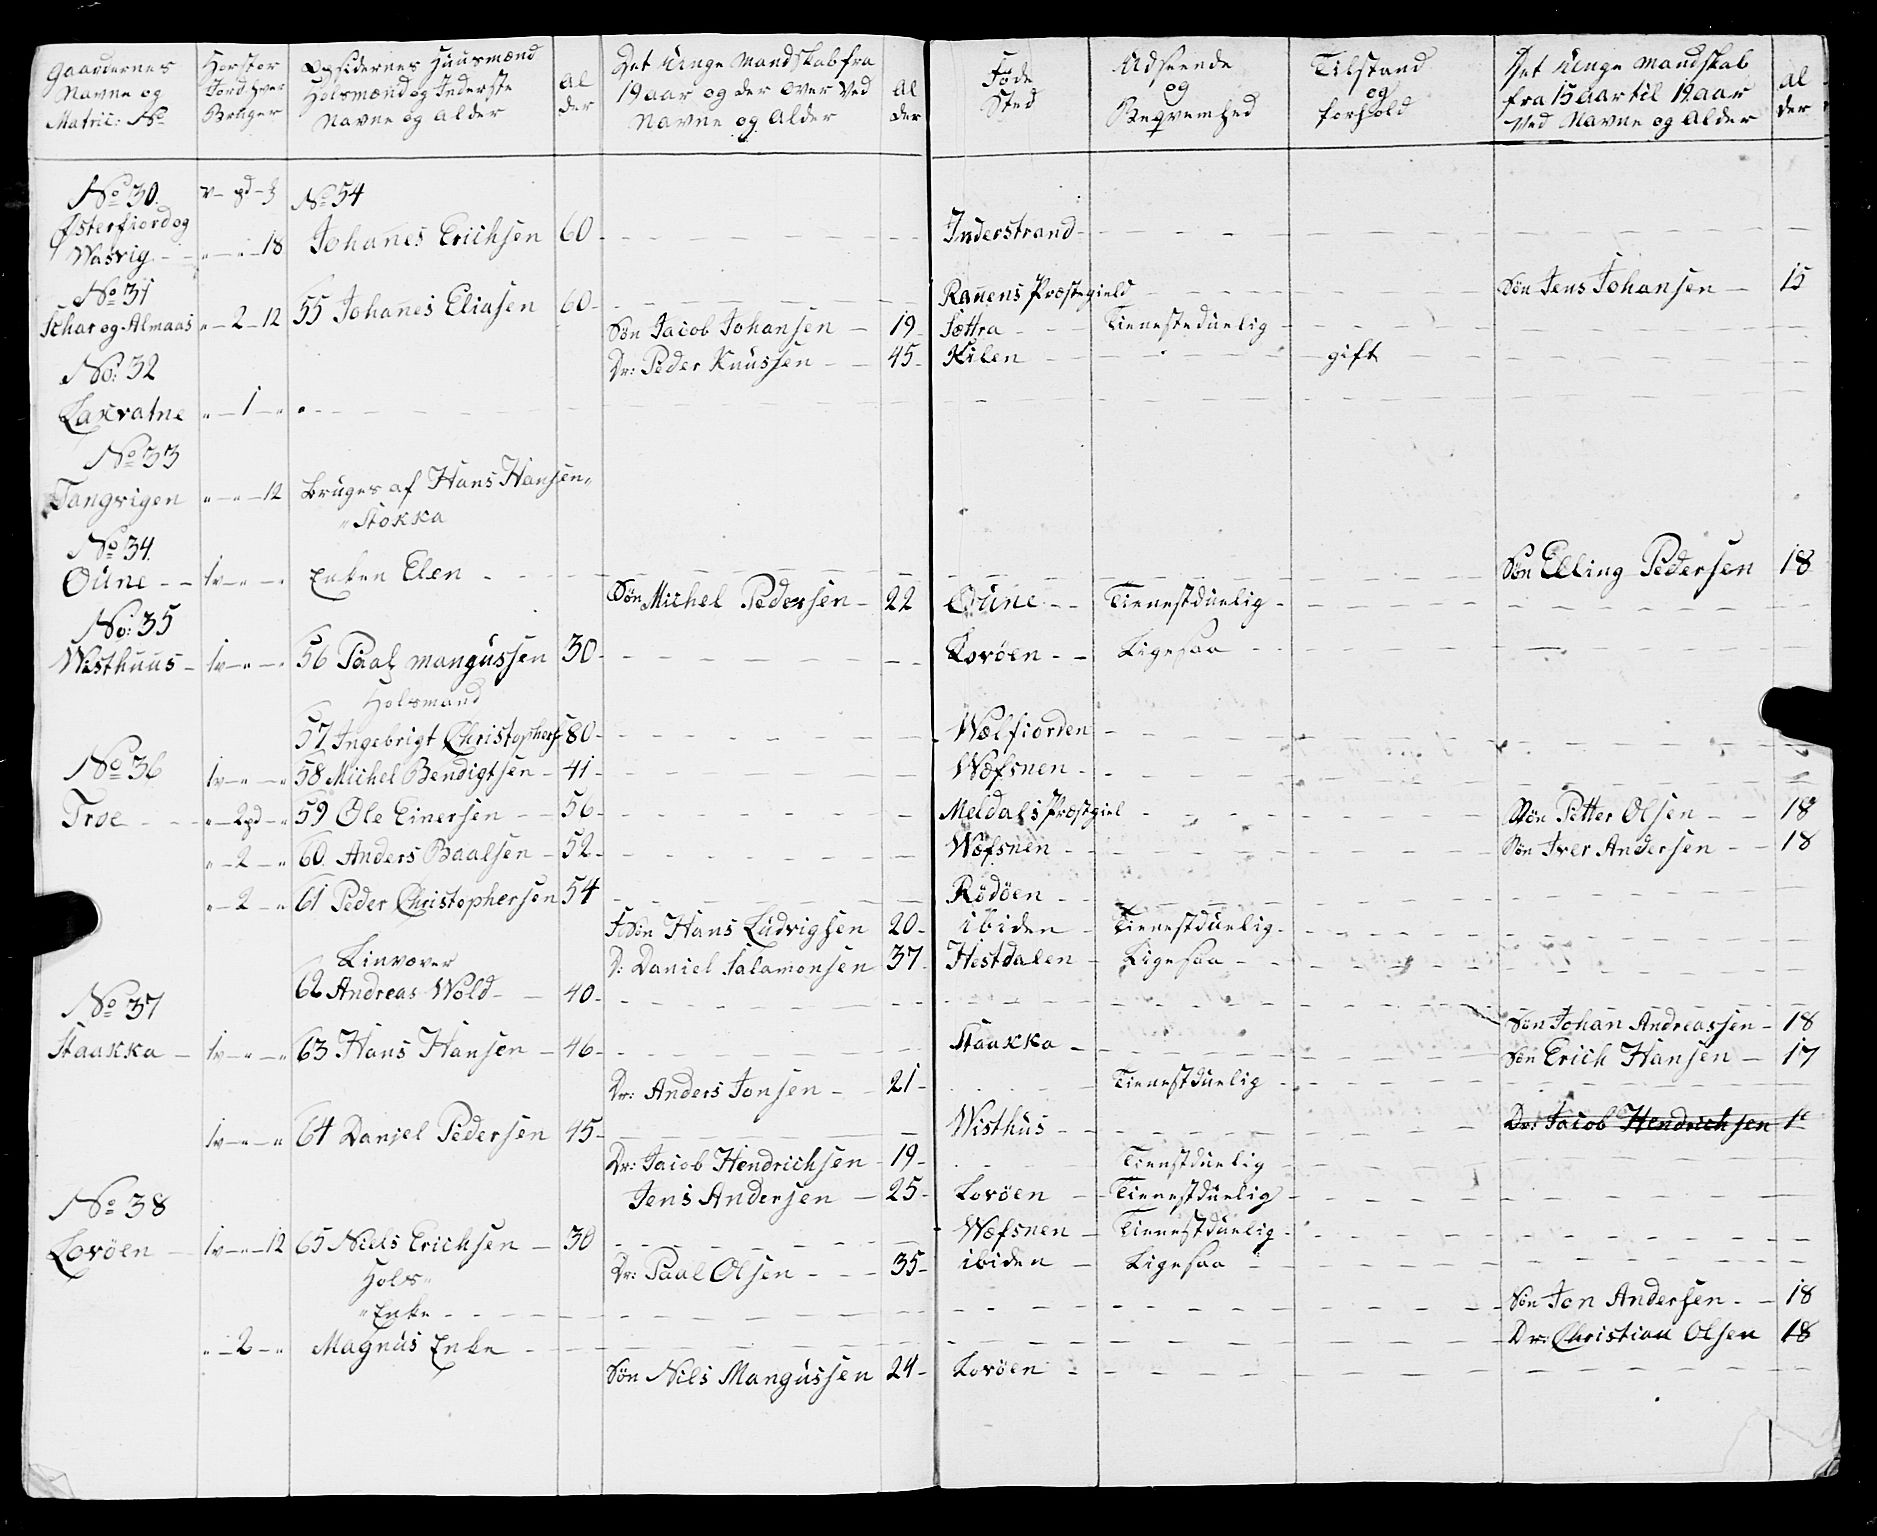 Gaardernes Navne og Matric: No | Hvorstor Jord hver Bruger | Opsidernes Huusmænd Holsmænd og Inderste Navne og alder | Al der | Det Unge Mandskab fra 19 aar og der over Ved Navne og Alder | Al der | Føde Sted | Udseende og Beqvemhed | Tilstand og forhold | Det Unge Mandskab fra 15 aar til 19 aar Ved Navne og Alder | Al der
No 30. | v - pd - | No 54
Østerfiord og Wasvig | " - " - 18 | Johanes Erichsen | 60 | Inderstrand
No 31
Schar og Almaas | " - 2 - 12 | 55 Johanes Eliasen | 60 | Ranens Præstegield | Søn Jens Johansen | 15
Søn Jacob Johansen | 19 | Sættra | Tienestedüelig
No: 32 | Dr: Peder Knüssen | 45 | Kilen | gift
Laxvatne | " - 1 - "
No 33
Tangvigen | " - " - 12 | bruges af Hans Hansen
" Stokka
No 34.
Oüne | 1v - " - " | Enken Elen | Søn Elling Pedersen | 18
Søn Michel Pedersen | 22 | Oüne | Tienestdüelig
No: 35
Wisthuus | 1v - " - " | 56 Paal mangüssen | 30 | Lovöen | Ligesaa
Holsmand
57 Ingebrigt Christophers | 80 | Wælfiorden
No 36 | 1v - " - " | 58 Michel Bendigtsen | 41 | Wæfsnen
Troe | " - 2pd - " | 59 Ole Einersen | 56 | Meldals Præstgiel | Søn Petter Olsen | 18
" - 2 - " | 60 Anders Baalsen | 52 | Wæfsnen | Søn Iver Andersen | 18
" - 2 - " | 61 Peder Christophersen | 54 | Rødöen
Hans Lüdvigsen | 20 | ibiden | Tienestdüelig
D: Daniel Salamonsen | 37 | Hestdalen | Ligesaa
62 Andreas Wold | 40
No 37 | Søn Johan Andreassen | 18
Staakka | 1v - " - " | 63 Hans Hansen | 46 | Staakka | Søn Erich Hansen | 17
Dr: Anders Jonsen | 21 | Tienestdüelig
1v - " - " | 64 Daniel Pedersen | 45 | Wisthüs | Dr: Jacob Hendrichsen
Dr: Jacob Hendrichsen | 19 | Tienstdüelig
No 38 | Jens Andersen | 25 | Lovöen | Tienestdüelig
Lovöen | 1v - " - 12 | 65 Niels Erichsen | 30 | Wæfsnen | Tienestdüelig
Hols " | Dr: Paal Olsen | 35 | ibiden | Ligesaa
" Enke | Søn Jon Andersen | 18
" - 2 - " | Magnüs Enke | Dr: Christian Olsen | 18
Søn Nils Mangüssen | 24 | Lovöen